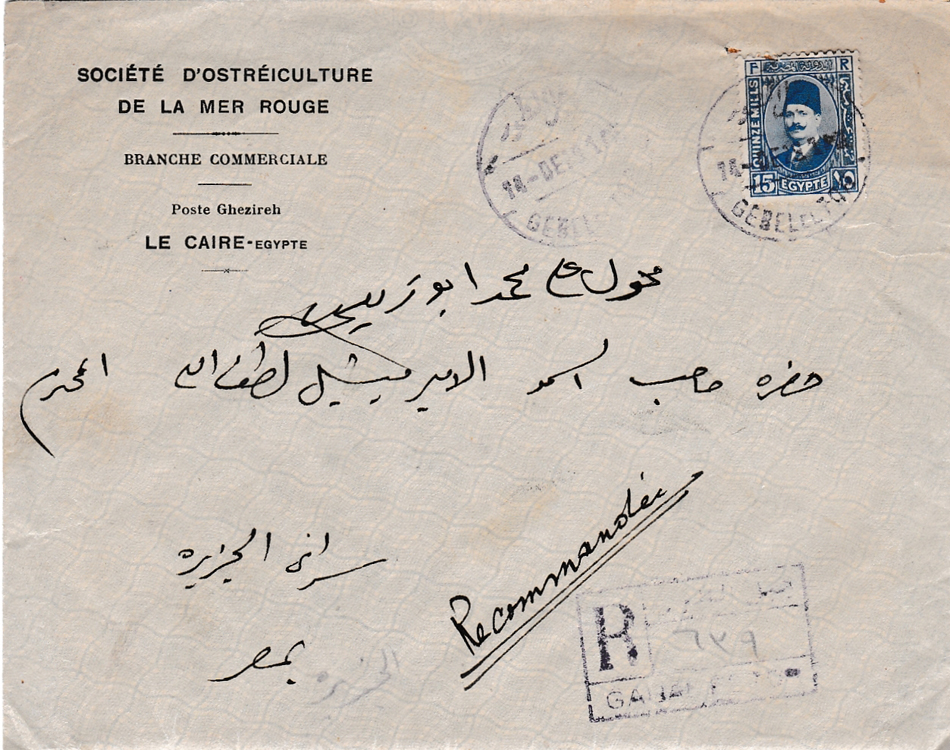 SOCIÉTÉ D'OSTRÉICULTURE
DE LA MER ROUGE
BRANCHE COMMERCIALE
Poste Ghezireh
LE CAIRE-EGYPTE
F R
QUINZE MILLS
15 EGYPTE ١٥
14-DE
GEBEL EL TOR
14-DE
GEBEL
محمد ابو
حضرة صاحب السمو الامير ميشيل لطف الله المحترم
سراى الجزيرة
بمصر
Recommandée
R
٦٧٩
الجزيرة